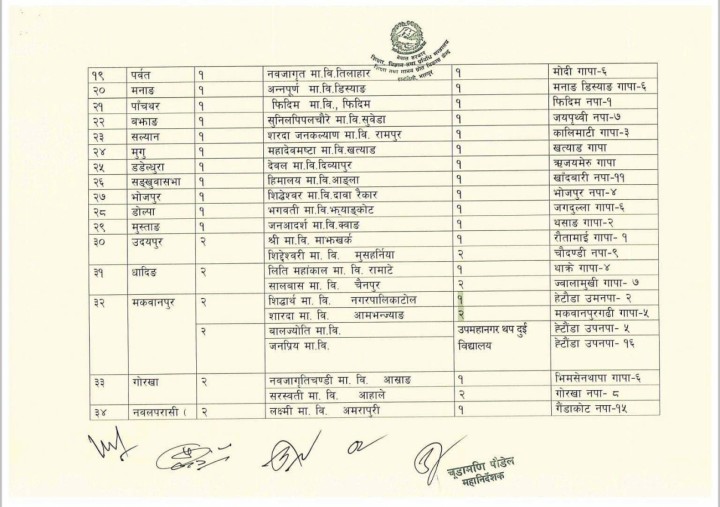 नेपाल सरकार
१९ पर्वत १ नवजागृत मा.वि.तिलाहार १ मोदी गापा-६
२० मनाङ १ अन्नपूर्ण मा.वि.डिस्याङ १ मनाङ डिस्याङ गापा-६
२१ पाँचथर १ फिदिम मा.वि., फिदिम १ फिदिम नपा-१
२२ बझाङ १ सुनिलपिपलचौरे मा.वि.सुवेडा १ जयपृथ्वी नपा-७
२३ सल्यान १ शारदा जनकल्याण मा.वि. रामपुर १ कालिमाटी गापा-३
२४ मुगु १ महादेवमष्टा मा.वि.खत्याड १ खत्याड गापा
२५ डडेल्धुरा १ देवल मा.वि.दिव्यापुर १ ऋजयमेरु गापा
२६ सङ्खुवासभा १ हिमालय मा.वि.आङ्ला १ खाँदबारी नपा-११
२७ भोजपुर १ शिद्धेश्वर मा.वि.दावा रैकार १ भोजपुर नपा-४
२८ डोल्पा १ भगवती मा.वि.झ्याङ्कोट १ जगदुल्ला गापा-६
२९ मुस्ताङ १ जनआदर्श मा.वि.क्वाङ १ थसाङ गापा-२
३० उदयपुर २ श्री मा.वि. माझखर्क १ रौतामाई गापा- १
शिद्देश्वरी मा. वि. मुसहर्निया २ चौदण्डी नपा-९
३१ धादिङ २ लिति महांकाल मा.वि. रामाटे १ थाक्रे गापा-४
सालबास मा. वि. चैनपुर २ ज्वालामुखी गापा- ७
३२ मकवानपुर २ शिद्धार्थ मा. वि. नगरपालिकाटोल १ हेटौडा उमनपा- २
शारदा मा. वि. आमभन्ज्याङ २ मकवानपुरगढी गापा-५
२ बालज्योति मा.वि. उपमहानगर थप दुई हेटौंडा उपनपा- ५
जनप्रिय मा.वि. विद्यालय हेटौंडा उपनपा- १६
३३ गोरखा २ नवजागृतिचण्डी मा. वि. आस्राङ १ भिमसेनथापा गापा-६
सरस्वती मा. वि. आहाले २ गोरखा नपा- ८
३४ नवलपरासी ( २ लक्ष्मी मा. वि. अमरापुरी १ गैंडाकोट नपा-१५
चूडामणि पौडेल
महानिर्देशक